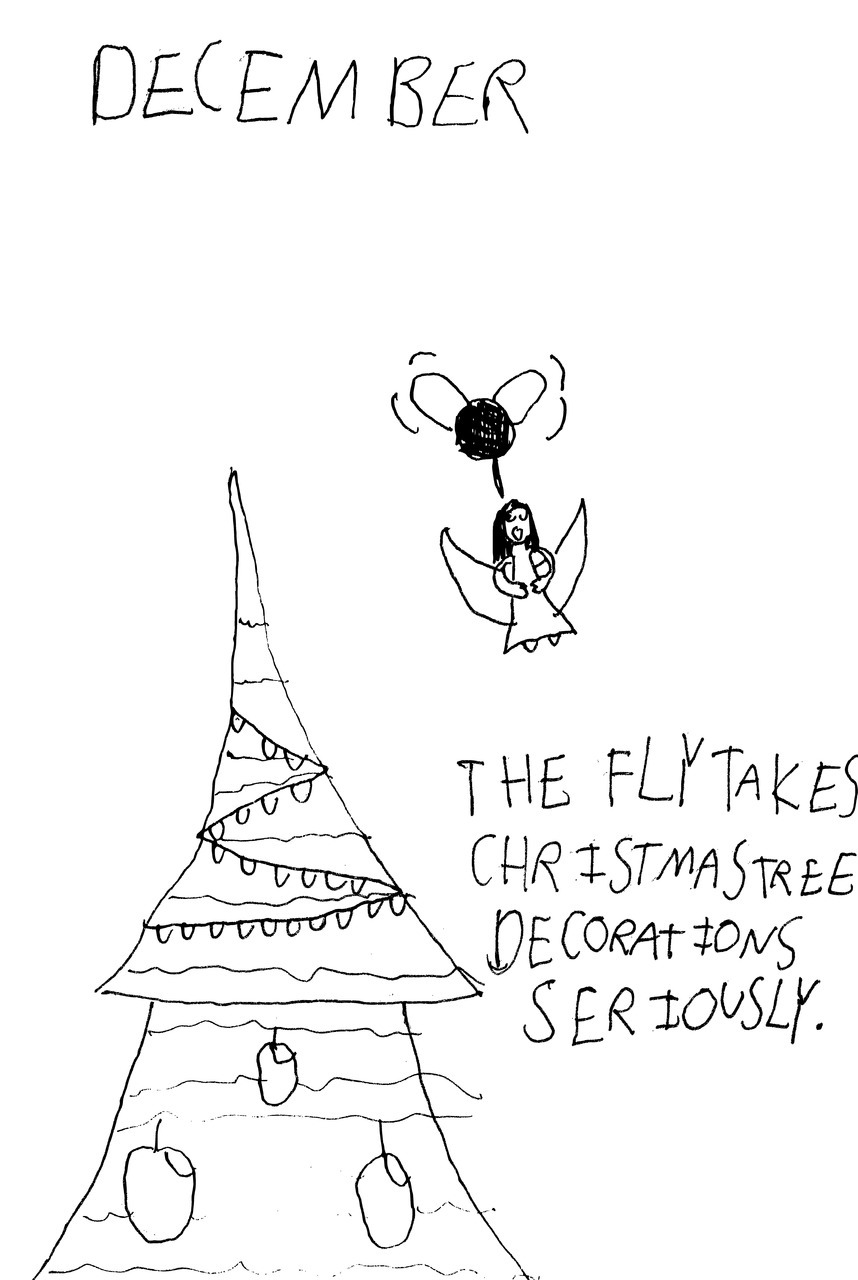 DECEMBER
THE FLY TAKES
CHRISTMAS TREE
DECORATIONS
SERIOUSLY.